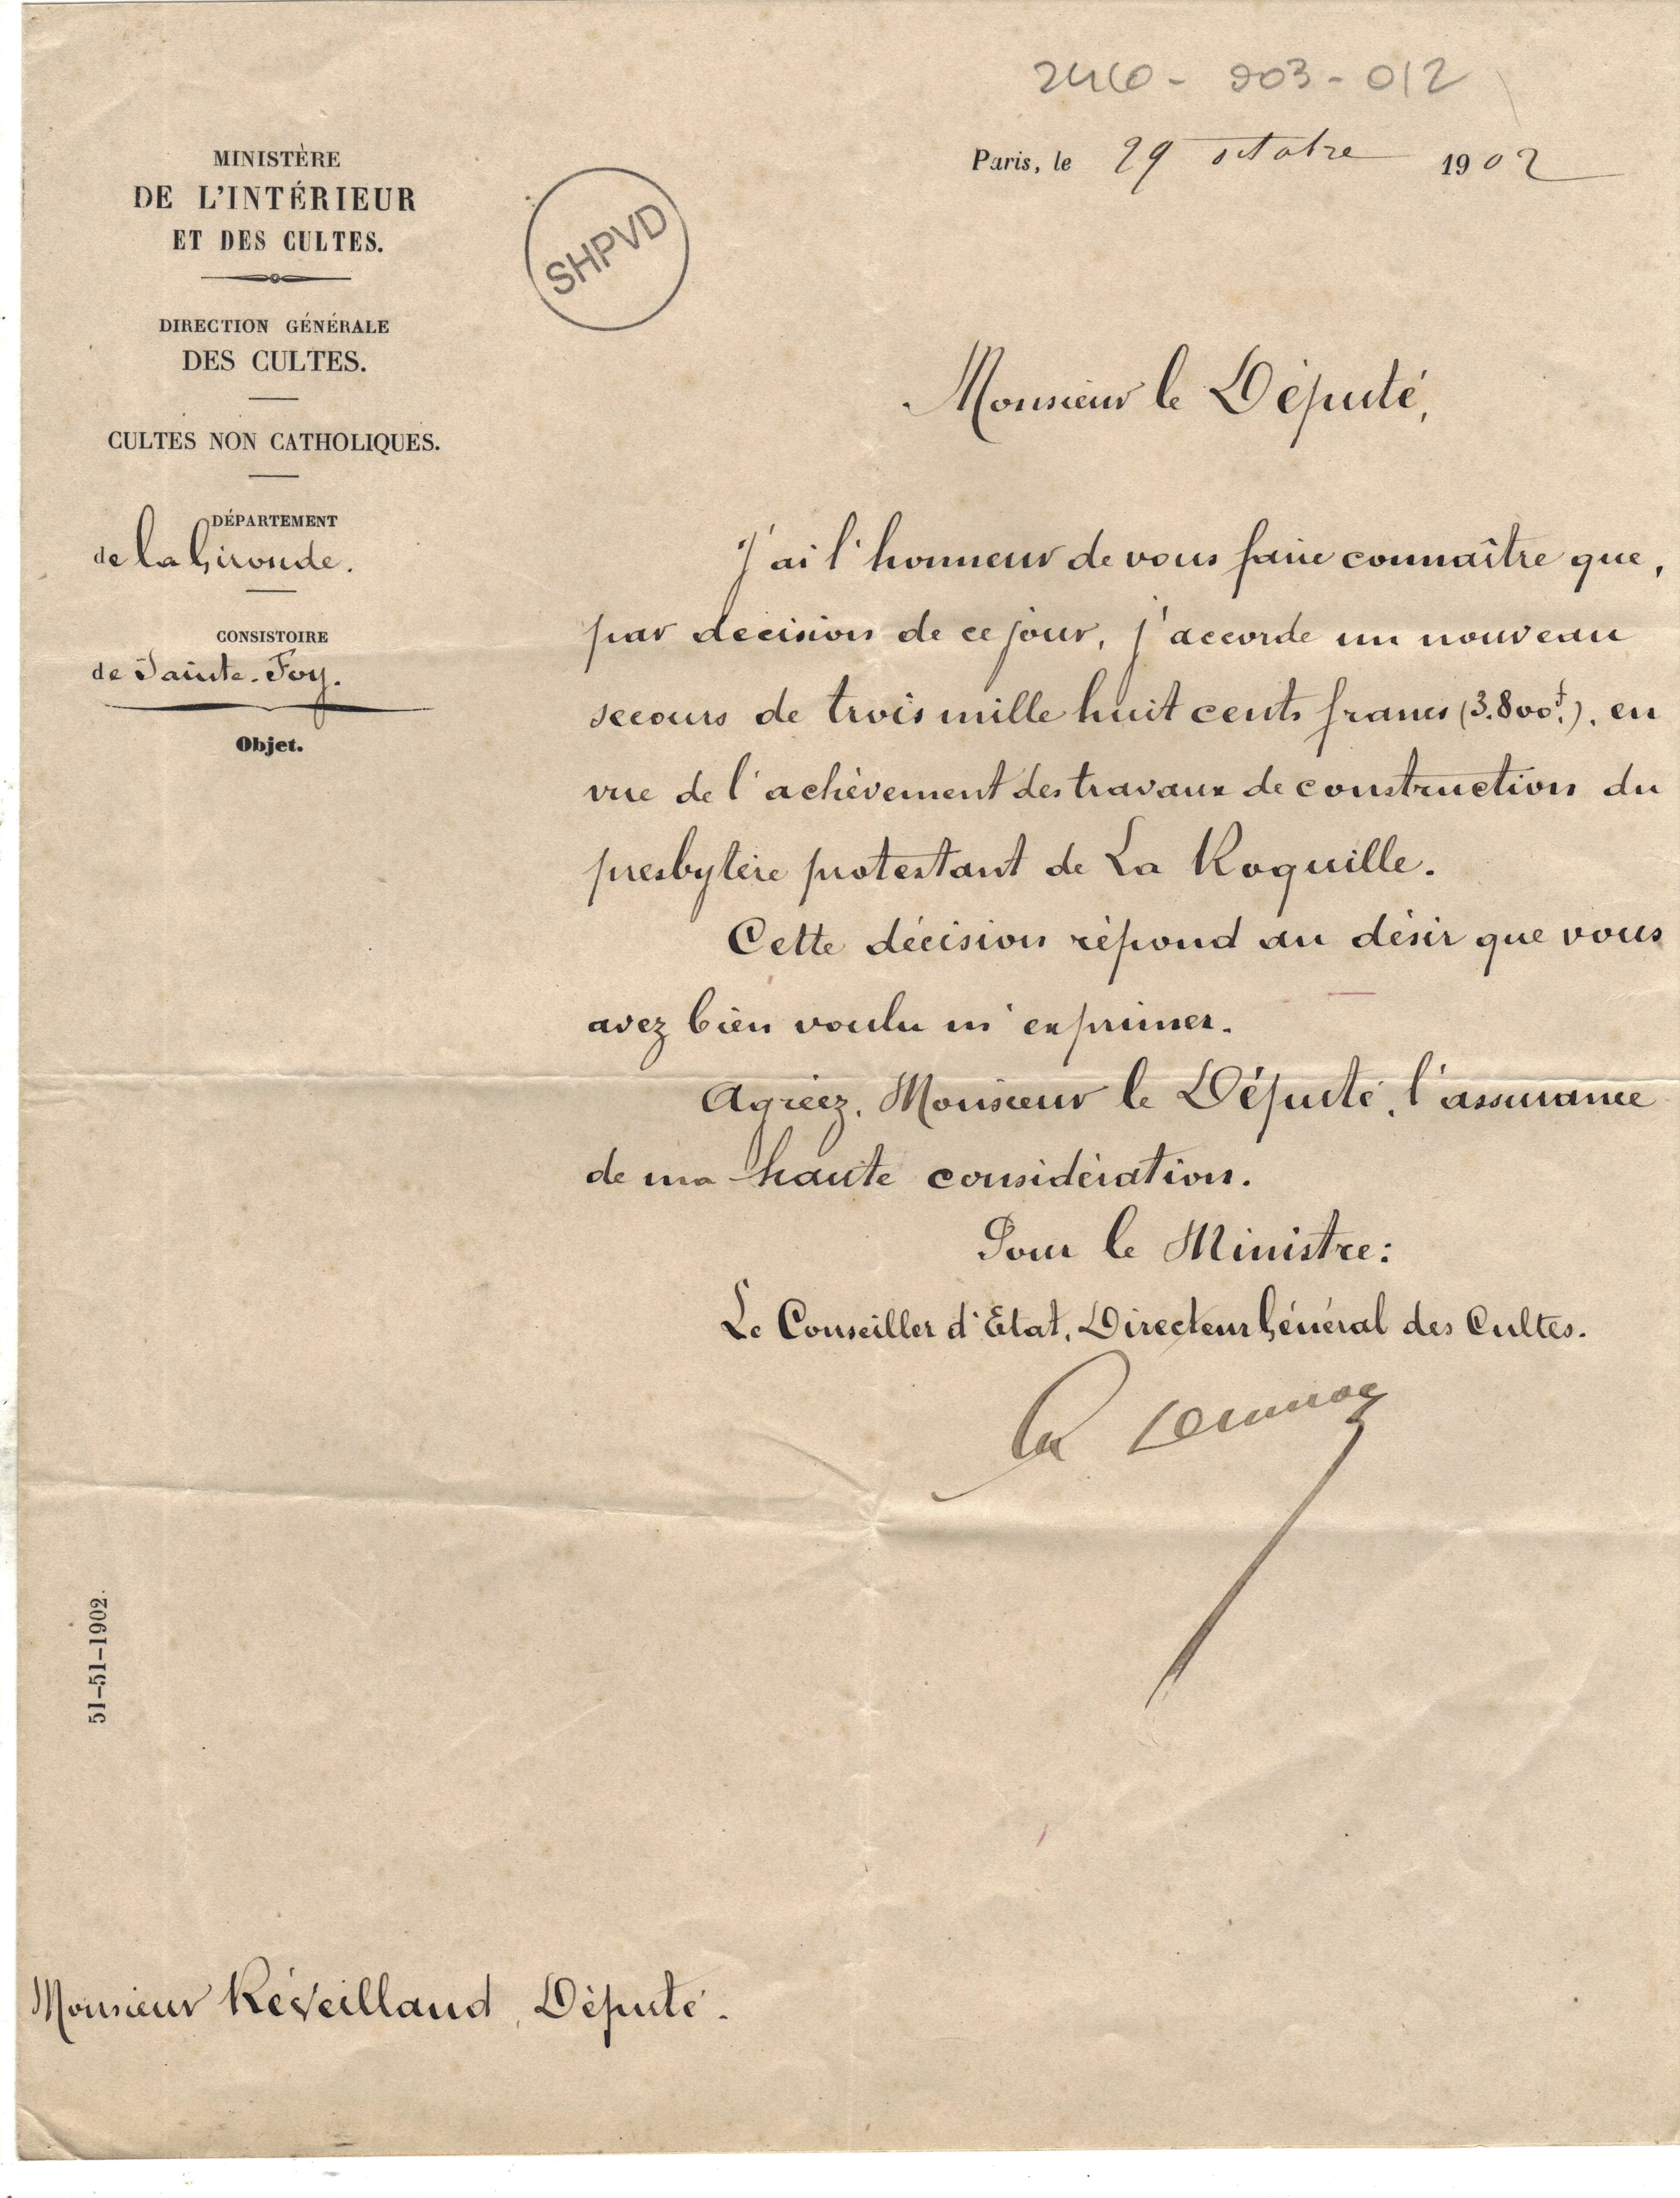 2460 - 903 - 012
Paris, le 29 octobre 1902
MINISTÈRE
DE L'INTÉRIEUR
ET DES CULTES.
SHPVD
DIRECTION GÉNÉRALE
DES CULTES.
CULTES NON CATHOLIQUES.
DÉPARTEMENT
de la Gironde.
CONSISTOIRE
de Sainte-Foy.
Objet.
Monsieur le Député,
J'ai l'honneur de vous faire connaître que,
par decision de ce jour, j'accorde un nouveau
secours de trois mille huit cents francs (3.800f.), en
vue de l'achèvement des travaux de construction du
presbytère protestant de La Roquille.
Cette décision répond au désir que vous
avez bien voulu m'exprimer.
Agréez, Monsieur le Député, l'assurance
de ma haute considération.
Pour le Ministre:
Le Conseiller d'Etat, Directeur Général des Cultes.
51-51-1902.
Monsieur Réveillaud, Député.